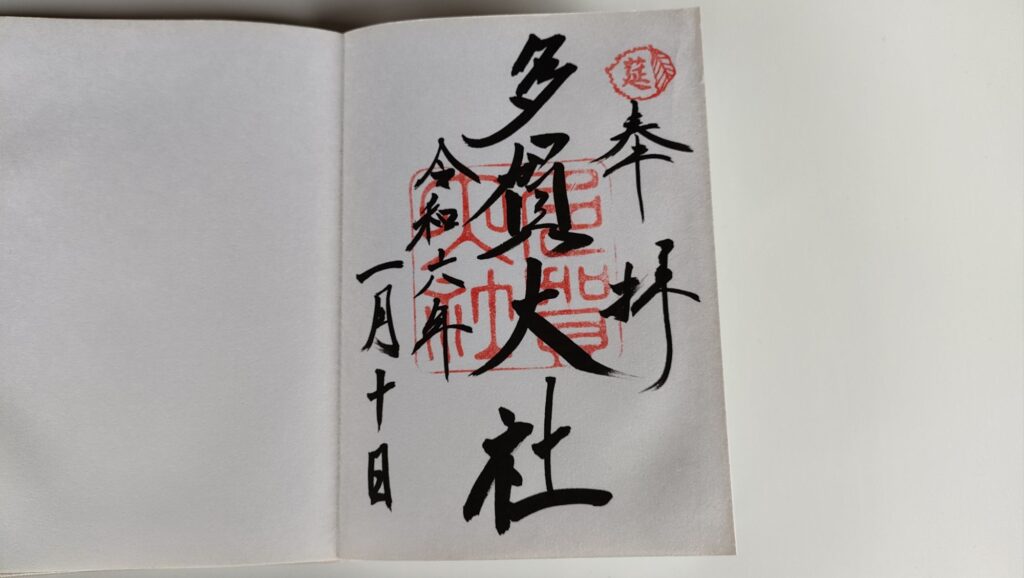 莚
奉拝
多賀大社
多賀大社
令和六年
一月十日